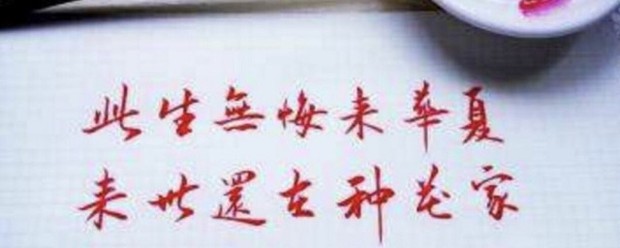 此生無悔来華夏
来世還在种花家